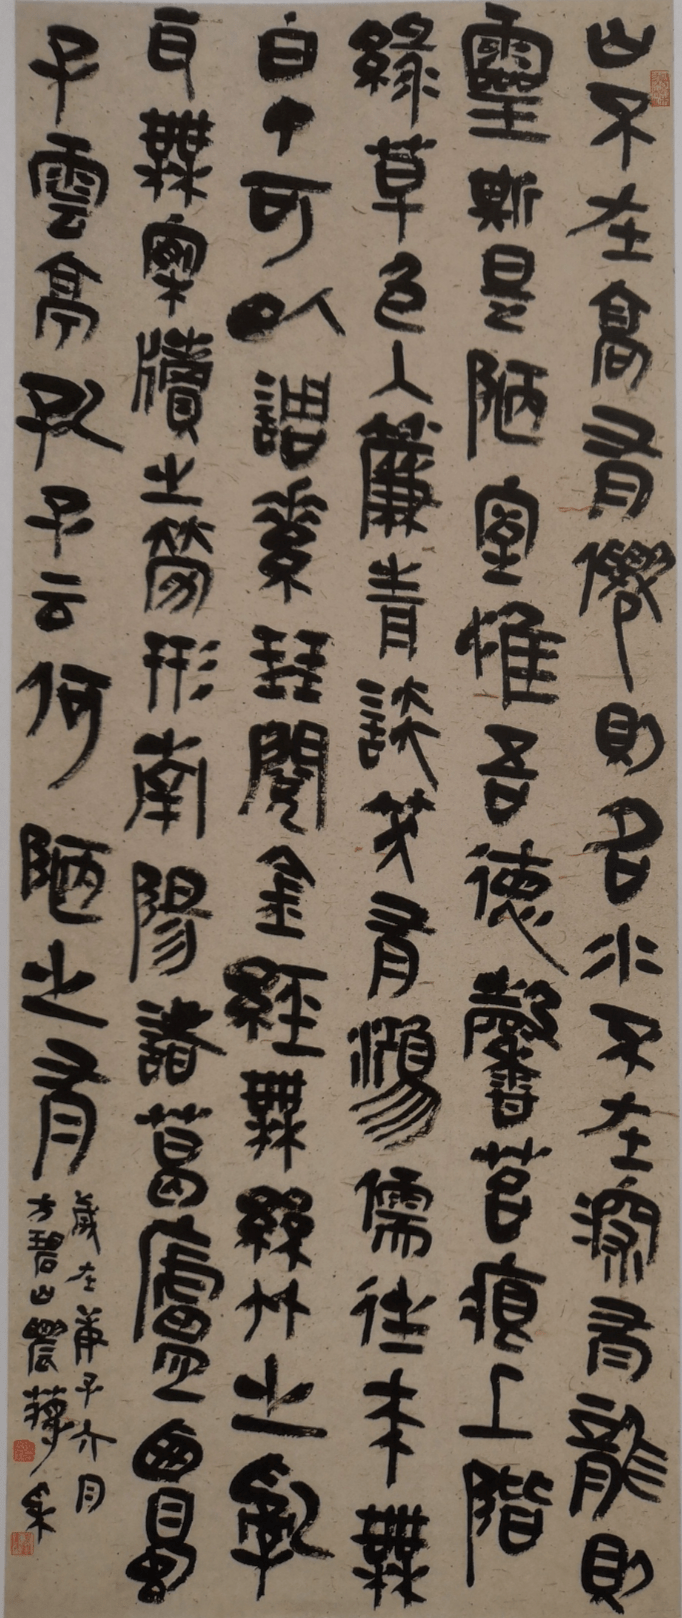 山不在高有僊則名水不在深有龍則
靈斯是陋室惟吾德馨苔痕上階
綠草色入簾青談笑有鴻儒往來無
白丁可以調素琴閱金經無絲竹之亂
耳無案牘之勞形南陽諸葛廬西蜀
子雲亭孔子云何陋之有
歲在庚子六月
方碧山農